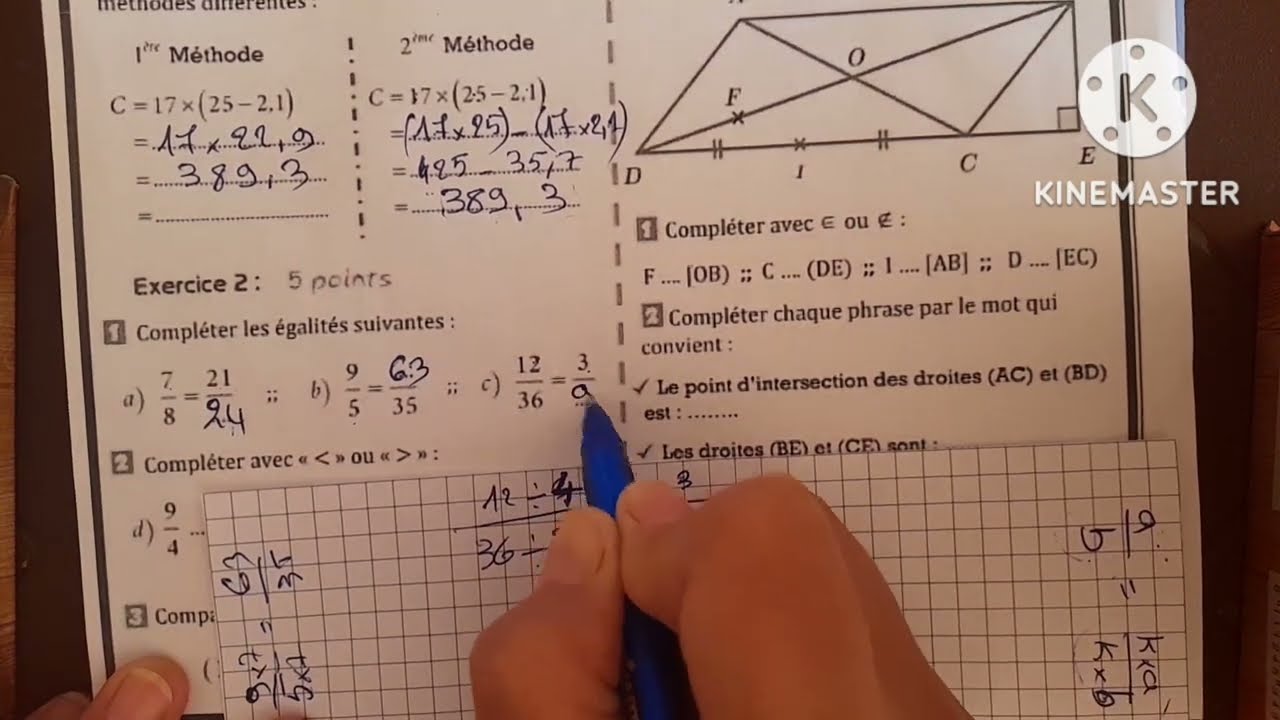 méthodes différentes :
1ère Méthode
C = 17 × (25 − 2,1)
= 17 × 22,9
= 389,3
=
2ème Méthode
C = 17 × (25 − 2,1)
= (17 × 25) − (17 × 2,1)
= 425 − 35,7
= 389,3
Exercice 2 : 5 points
1 Compléter les égalités suivantes :
a) 7/8 = 21/24 ;; b) 9/5 = 63/35 ;; c) 12/36 = 3/9
2 Compléter avec « < » ou « > » :
d) 9/4 ...
3 Compa
(
O
F
D
I
C
E
K
KINEMASTER
1 Compléter avec ∈ ou ∉ :
F .... [OB) ;; C .... (DE) ;; I .... [AB] ;; D .... [EC)
2 Compléter chaque phrase par le mot qui
convient :
✓ Le point d'intersection des droites (AC) et (BD)
est : ........
✓ Les droites (BE) et (CE) sont :
12 ÷ 4
36 ÷
3
63/35 = 9×7/5×7
a/b = k×a/k×b